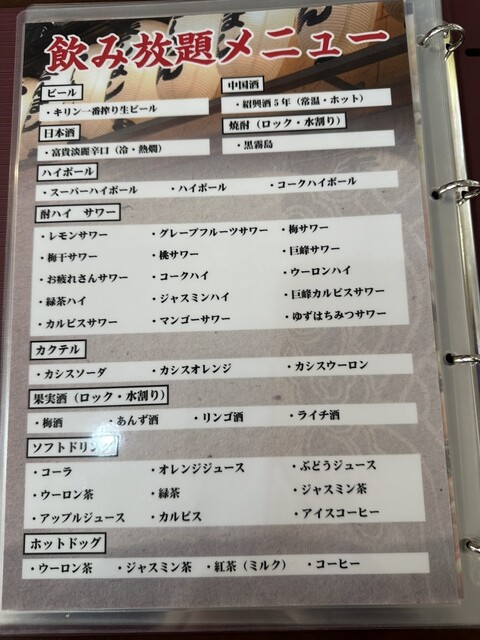 飲み放題メニュー
ビール
・キリン一番搾り生ビール
中国酒
・紹興酒5年（常温・ホット）
日本酒
・富貴淡麗辛口（冷・熱燗）
焼酎（ロック・水割り）
・黒霧島
ハイボール
・スーパーハイボール ・ハイボール ・コークハイボール
酎ハイ サワー
・レモンサワー ・グレープフルーツサワー ・梅サワー
・梅干サワー ・桃サワー ・巨峰サワー
・お疲れさんサワー ・コークハイ ・ウーロンハイ
・緑茶ハイ ・ジャスミンハイ ・巨峰カルピスサワー
・カルピスサワー ・マンゴーサワー ・ゆずはちみつサワー
カクテル
・カシスソーダ ・カシスオレンジ ・カシスウーロン
果実酒（ロック・水割り）
・梅酒 ・あんず酒 ・リンゴ酒 ・ライチ酒
ソフトドリンク
・コーラ ・オレンジジュース ・ぶどうジュース
・ウーロン茶 ・緑茶 ・ジャスミン茶
・アップルジュース ・カルピス ・アイスコーヒー
ホットドッグ
・ウーロン茶 ・ジャスミン茶 ・紅茶（ミルク） ・コーヒー